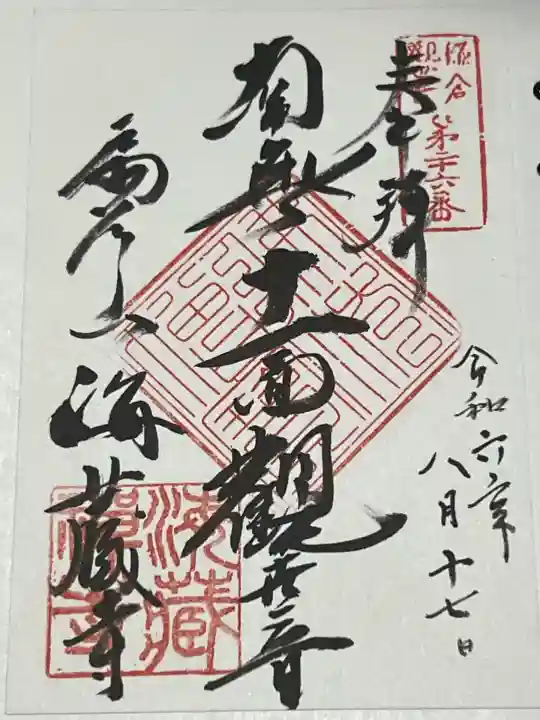 鎌倉
観音
第二十六番
奉拝
令和六年
八月十七日
南無十一面観世音
扇谷山海蔵寺
海蔵
禅寺